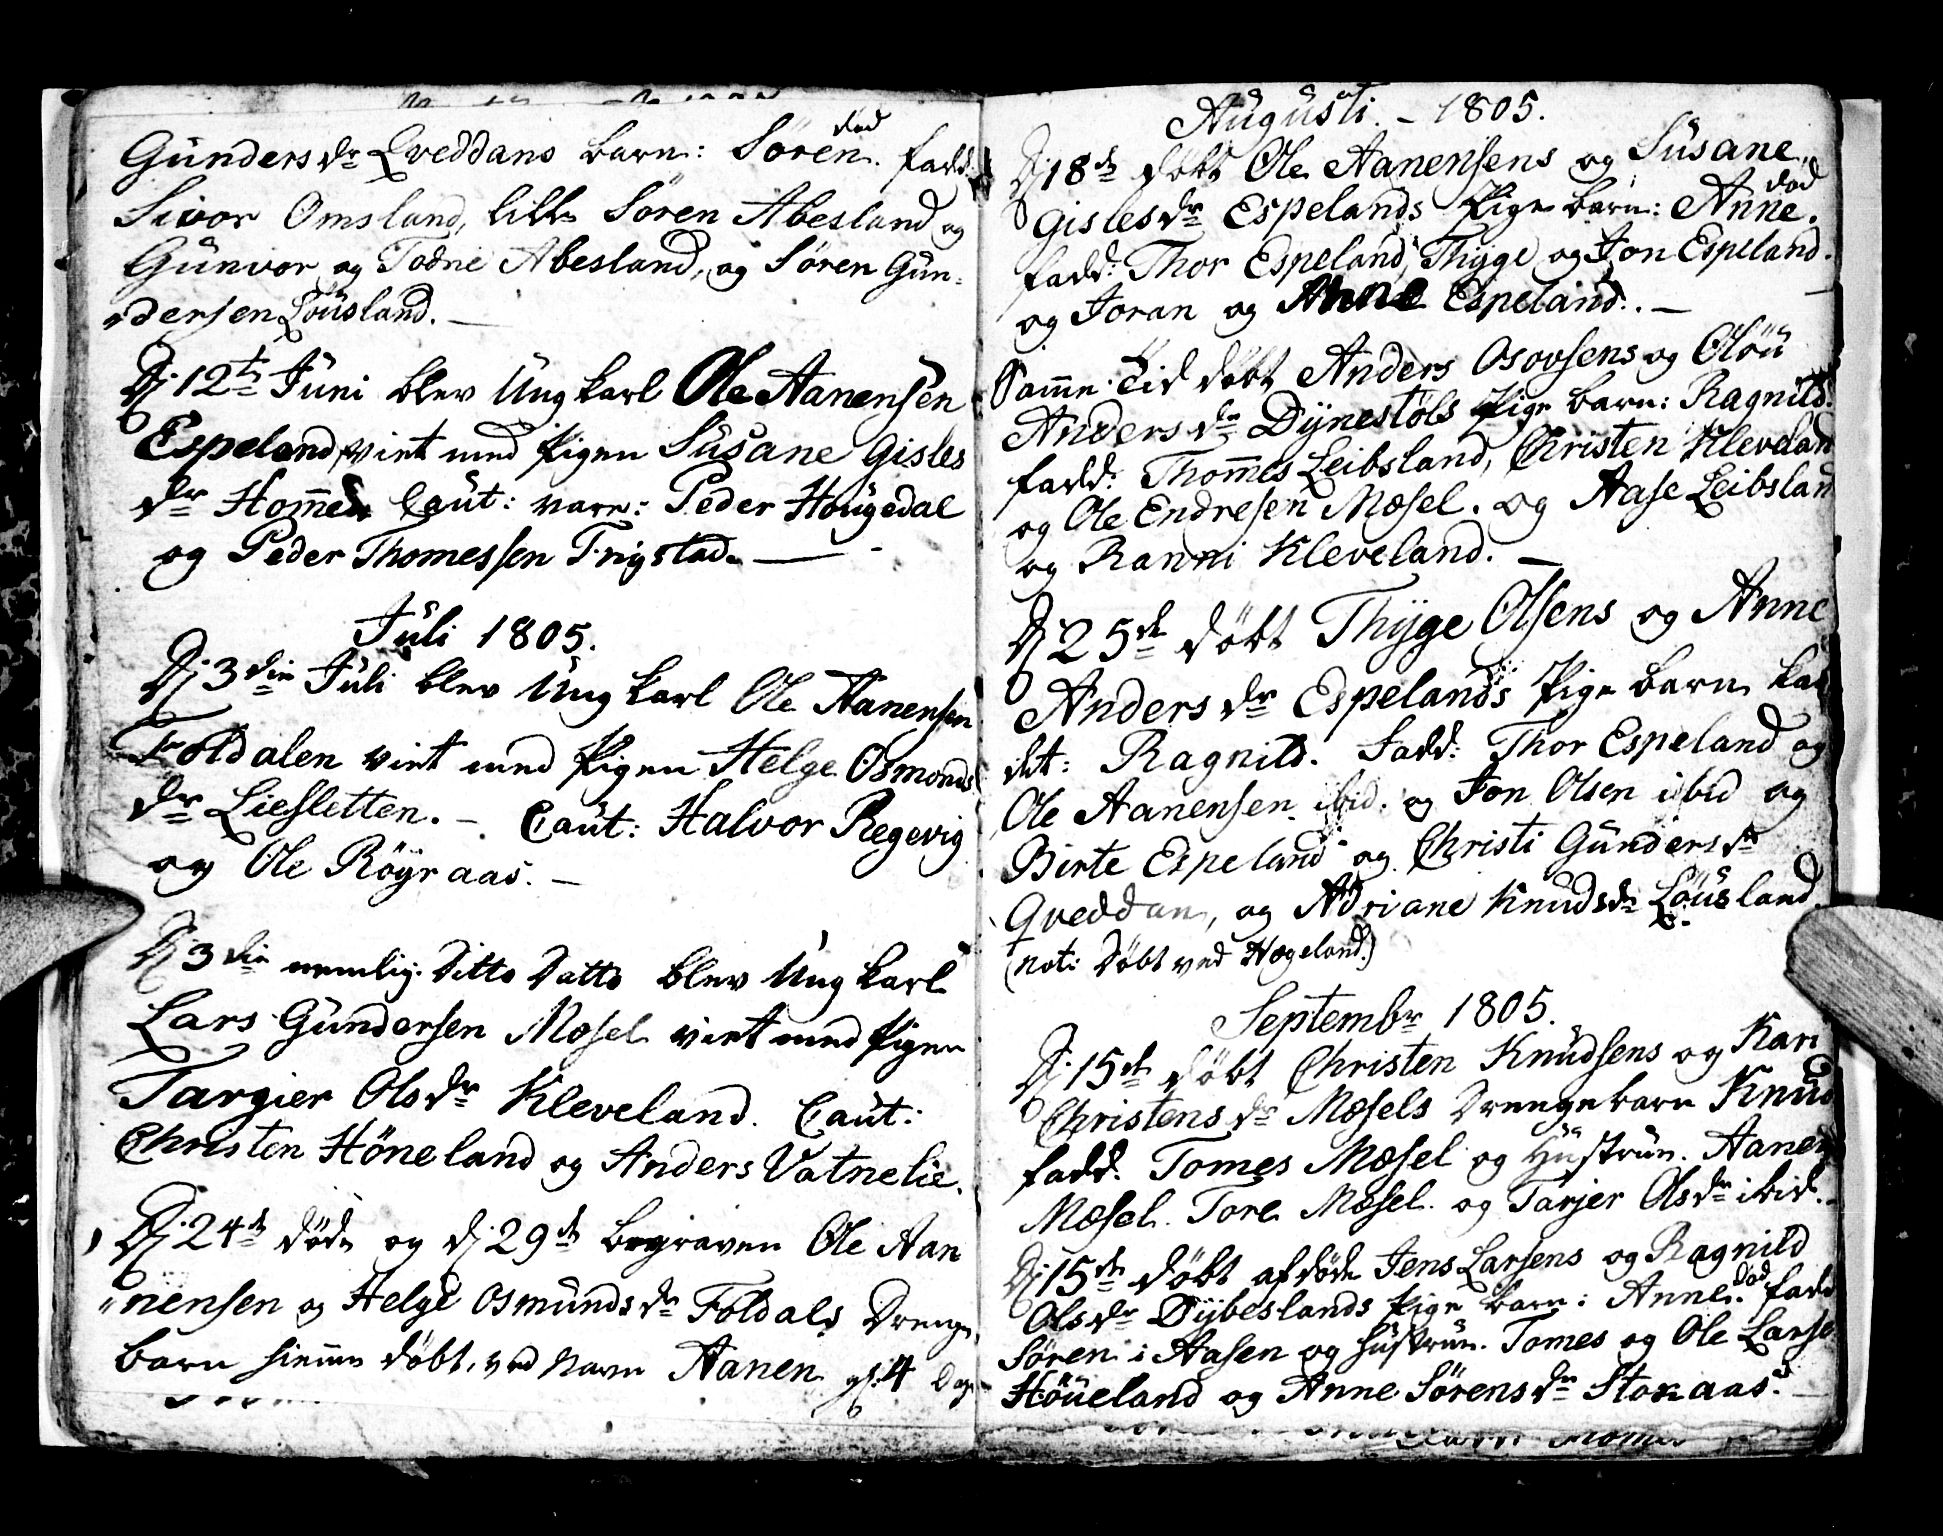 død
Gunders dr Qveddans barn: Sören. fadd:
Sivor Omsland, lille Sören Abesland og
Gunvor og Todne Abesland, og Sören Gun-
dersen Löusland. —
Dj 12te Juni blev Ung karl Ole Aanensen
Espeland, viet med Pigen Susane Gisles
dr Homme Caut: vare: Peder Hougedal
og Peder Thomessen Trigstad. —
Juli 1805.
Dj 3die Juli blev Ung karl Ole Aanensen
Foldalen viet med Pigen Helge Osmonds
dr Liesletten. — Caut: Halvor Regevig
og Ole Röyraas. —
Dj 3die nemlig Ditto Datto blev Ung karl
Lars Gundersen Mosel viet med Pigen
Targier Ols dr Kleveland. Caut:
Christen Höneland og Anders Vatnelie.
Dj 24de døde og dj 29de begraven Ole Aan
"nensen og Helge Osmunds dr Foldals Drenge
barn hiemme döbt, ved Navn Aanen gl: 4 Dage
Augusti. – 1805.
Dj 18de döbt Ole Aanensens og Susane
død
Gisles dr Espelands Pige barn: Anne.
fadd: Thor Espeland, Thyge og Jon Espeland.
og Joran og Anne Espeland. —
Samme Tid döbt Anders Osovsens og Olöu
Anders dr Dynestöls Pige barn: Ragnild.
fadd: Thommes Leibsland, Christen Klevelan
og Ole Endresen Mosel. og Aase Leibslan
og Ranni Kleveland. —
Dj 25de döbt Thyge Olsens og Anne
Anders dr Espelands Pige barn kal
det: Ragnild. Fadd: Thor Espeland og
Ole Aanensen ibid. og Jon Olsen ibid og
Birte Espeland og Christi Gunders dr
Qveddan, og Adriane Knuds dr Löusland.
(not: Döbt ved Hægeland.)
Septembr 1805.
Dj 15de döbt Christen Knudsens og Kari
Christens dr Mosels Drengebarn Knud
fadd. Tomes Mosel og Hustrue. Aanen
Mosel. Tore Mosel. og Tarjer Ols dr ibid.
Dj 15de döbt afdöde Jens Larsens og Ragnild
død
Ols dr Dybeslands Pige barn: Anne. fadd
Sören i Aasen og Hustrue. Tomes og Ole Larse
Höueland og Anne Sörens dr Stokaas. —